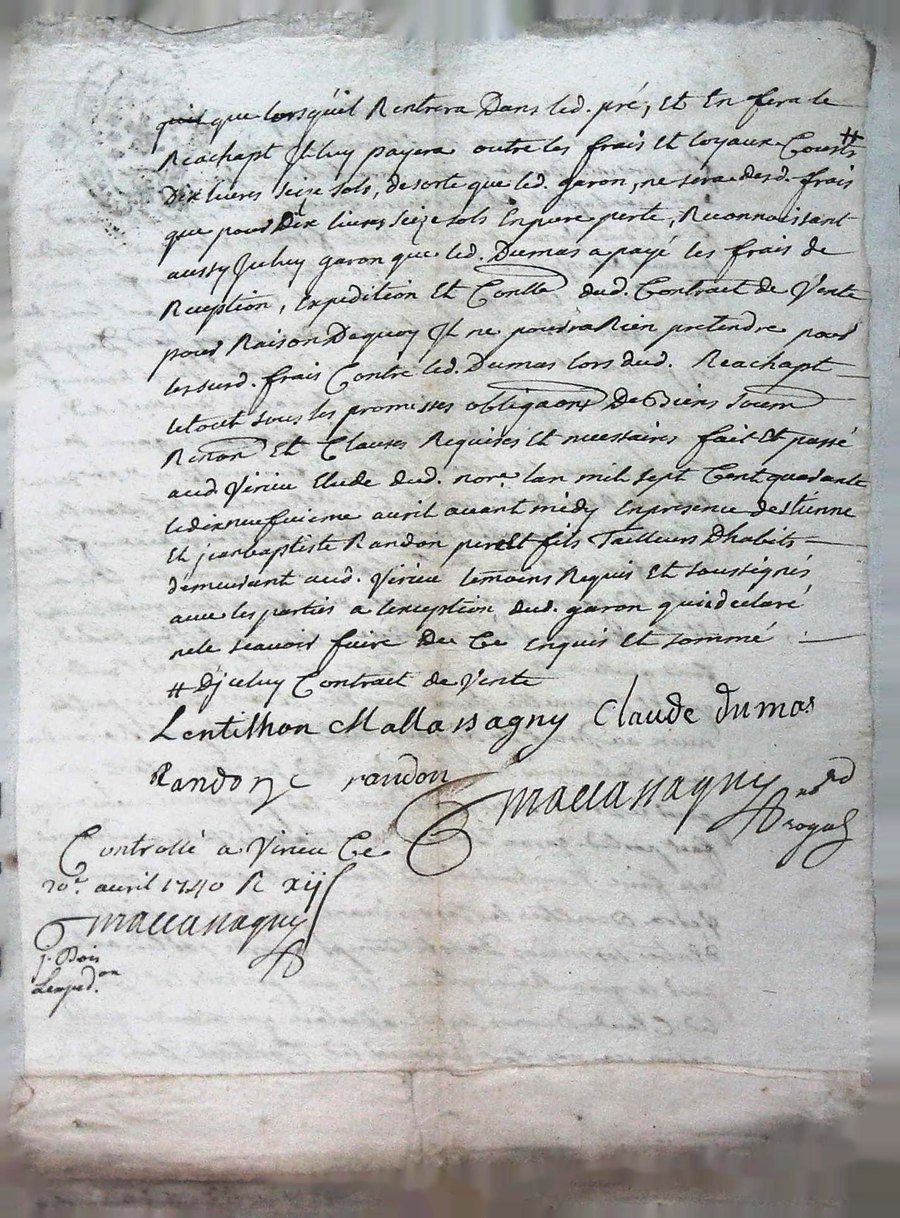 que lorsquil Rentrera Dans led. pré, Et En fera le
Reachapt Il luy payera outre les frais Et loyaux Cousts #
Dix livres seize sols, de sorte que led. garon, ne sera desd. frais
que pour Dix livres seize sols En pure perte, Reconnoissant
aussy Iceluy garon que led. Dumas a payé les frais de
Reception, Expedition Et Conlle dud. Contrat de Vente
pour Raison Dequoy Il ne pourra Rien pretendre pour
les susd. frais Contre led. Dumas lors dud. Reachapt
le tout sous les promesses obligaons De Biens
Renon Et Clauses Requises Et necessaires fait Et passé
aud. Virieu Etude dud. nore. lan mil sept Cent quarante
le dix neufuieme avril avant midy En presence destienne
Et jean baptiste Randon pere Et fils Tailleurs Dhabits
demeurant aud. Virieu temoins Requis Et soussignés
avec les parties a lexception dud. garon qui a declaré
ne le scavoir faire De Ce Enquis Et sommé
# Djceluy Contrat de Vente
Lentilhon Mallassagny Claude dumas
Randon randon
maccassagny
Controllé a Virieu Ce
20e. avril 1740 R xij s
maccassagny